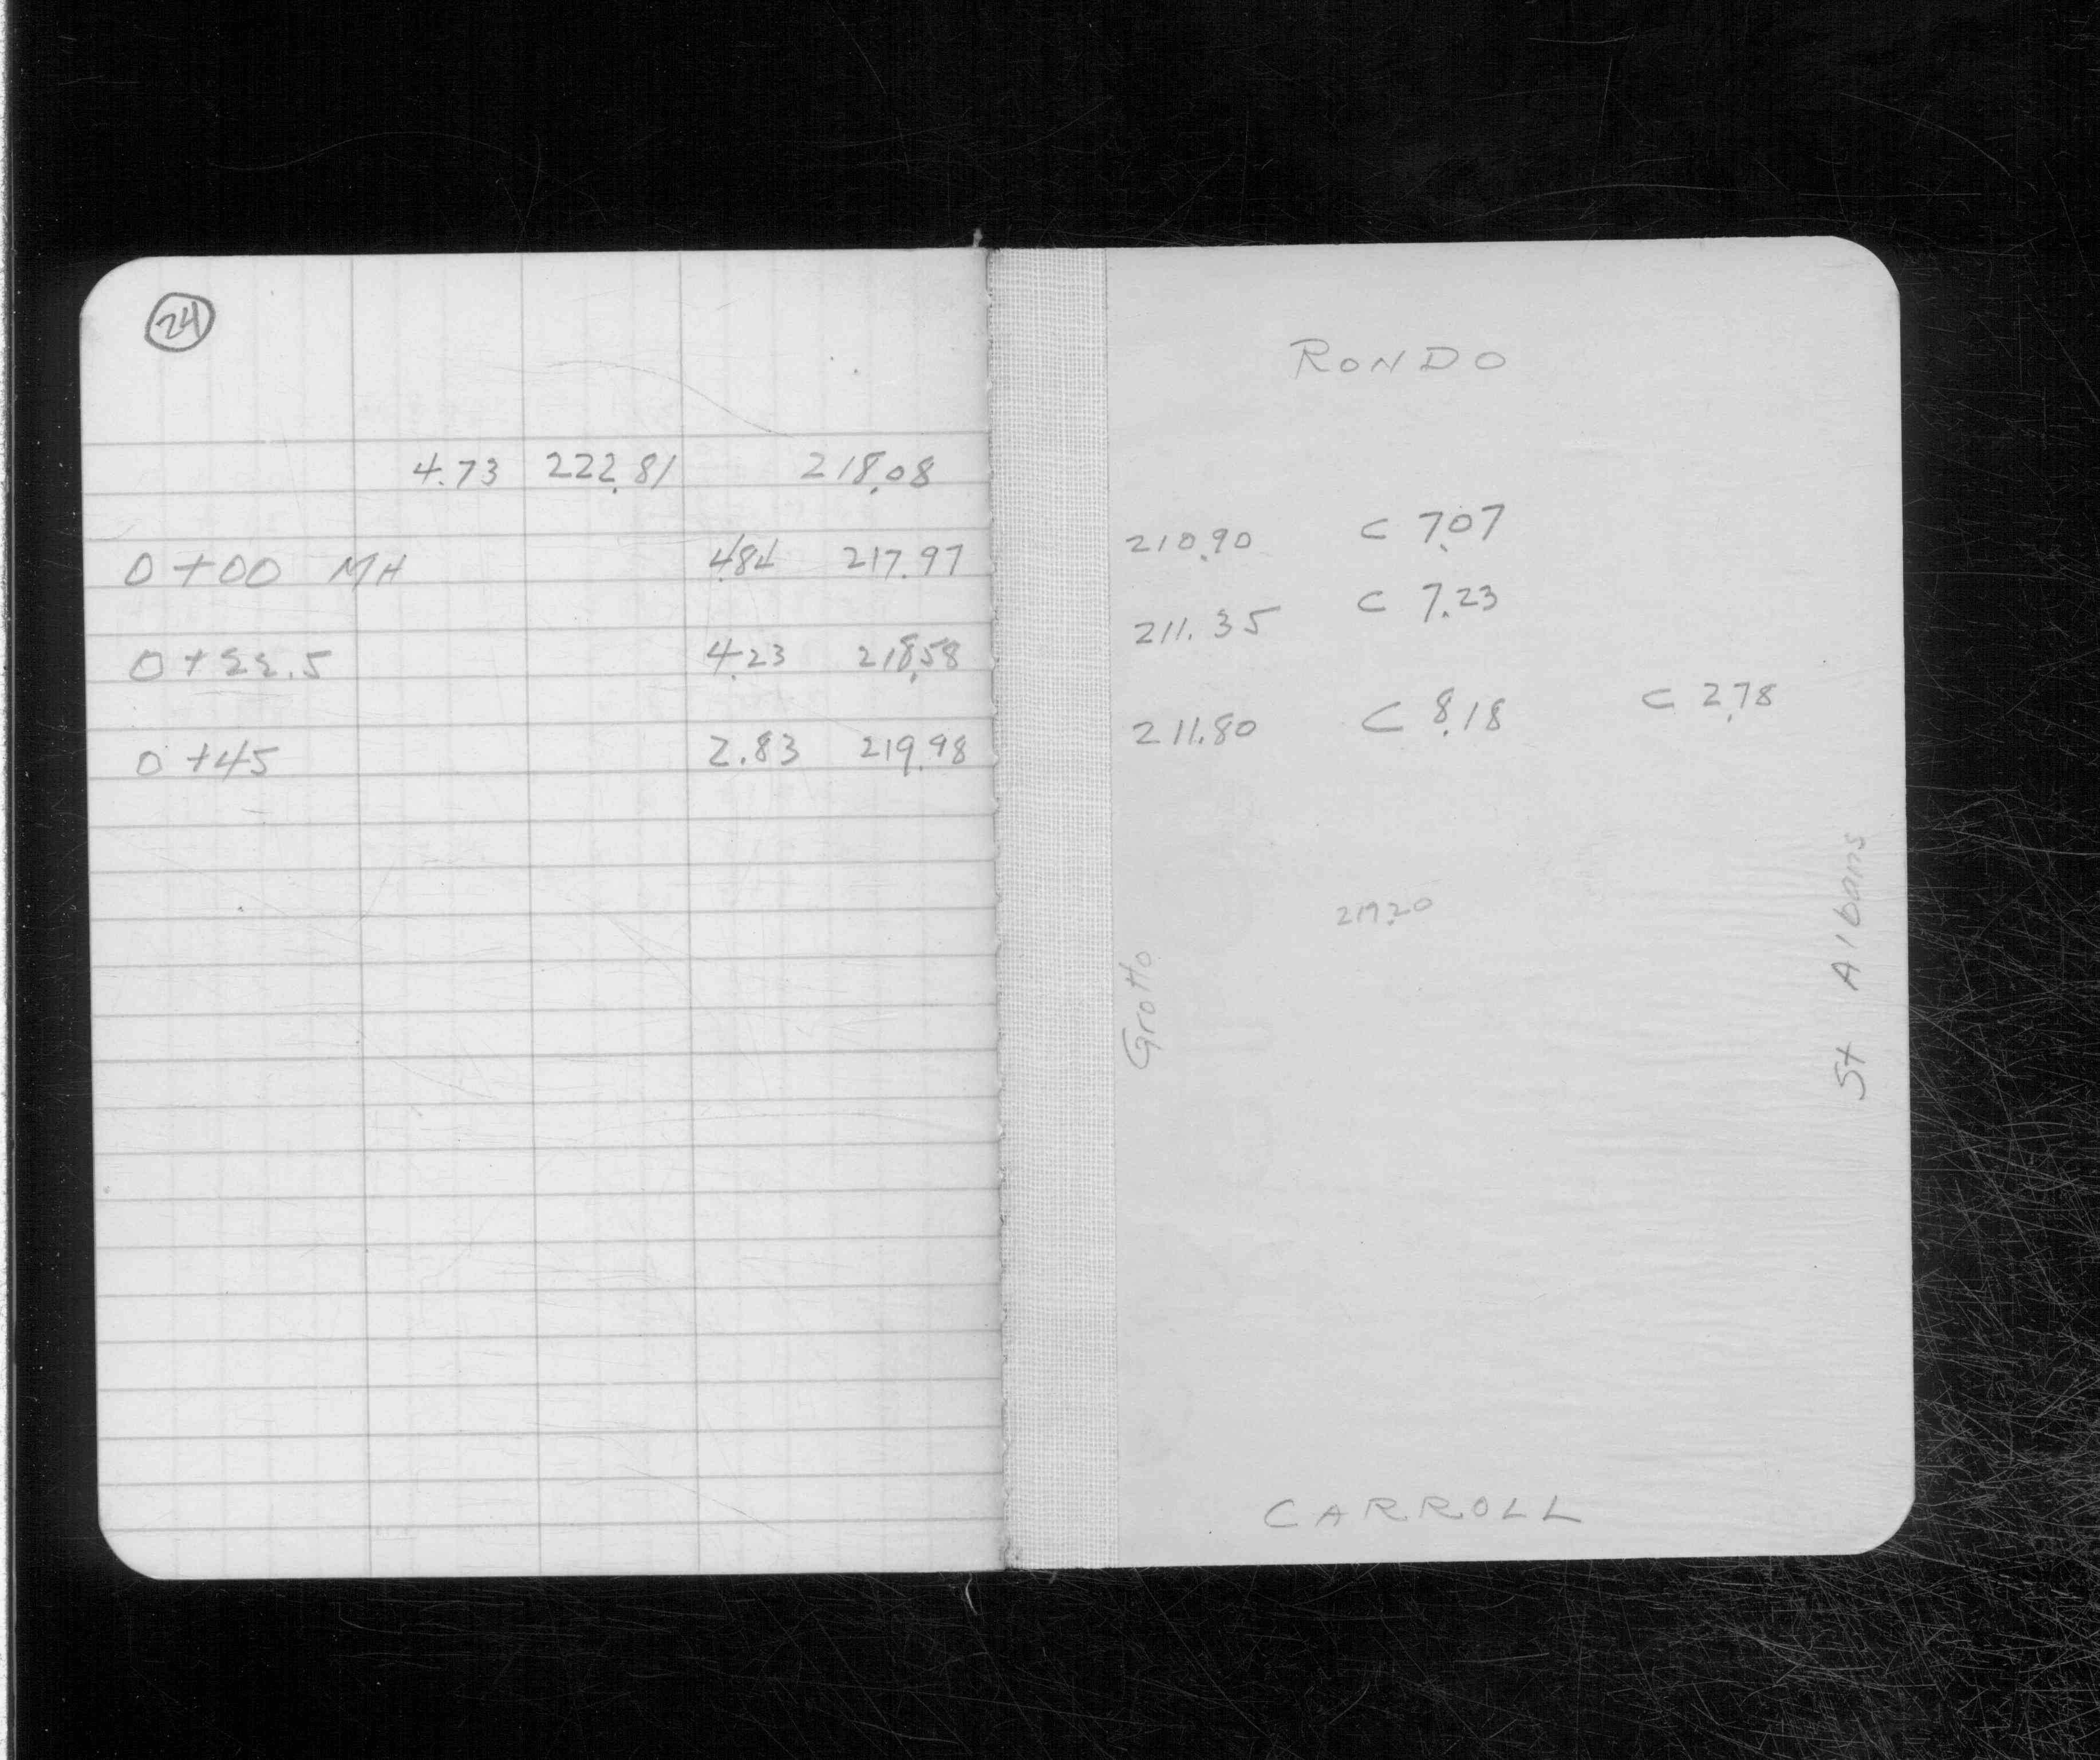 24
4.73 222.81 218.08
0+00 MH 4.84 217.97
0+22.5 4.23 218.58
0+45 2.83 219.98
RONDO
210.90 C 7.07
211.35 C 7.23
211.80 C 8.18 C 2.78
219.20
Grotto
St Albans
CARROLL